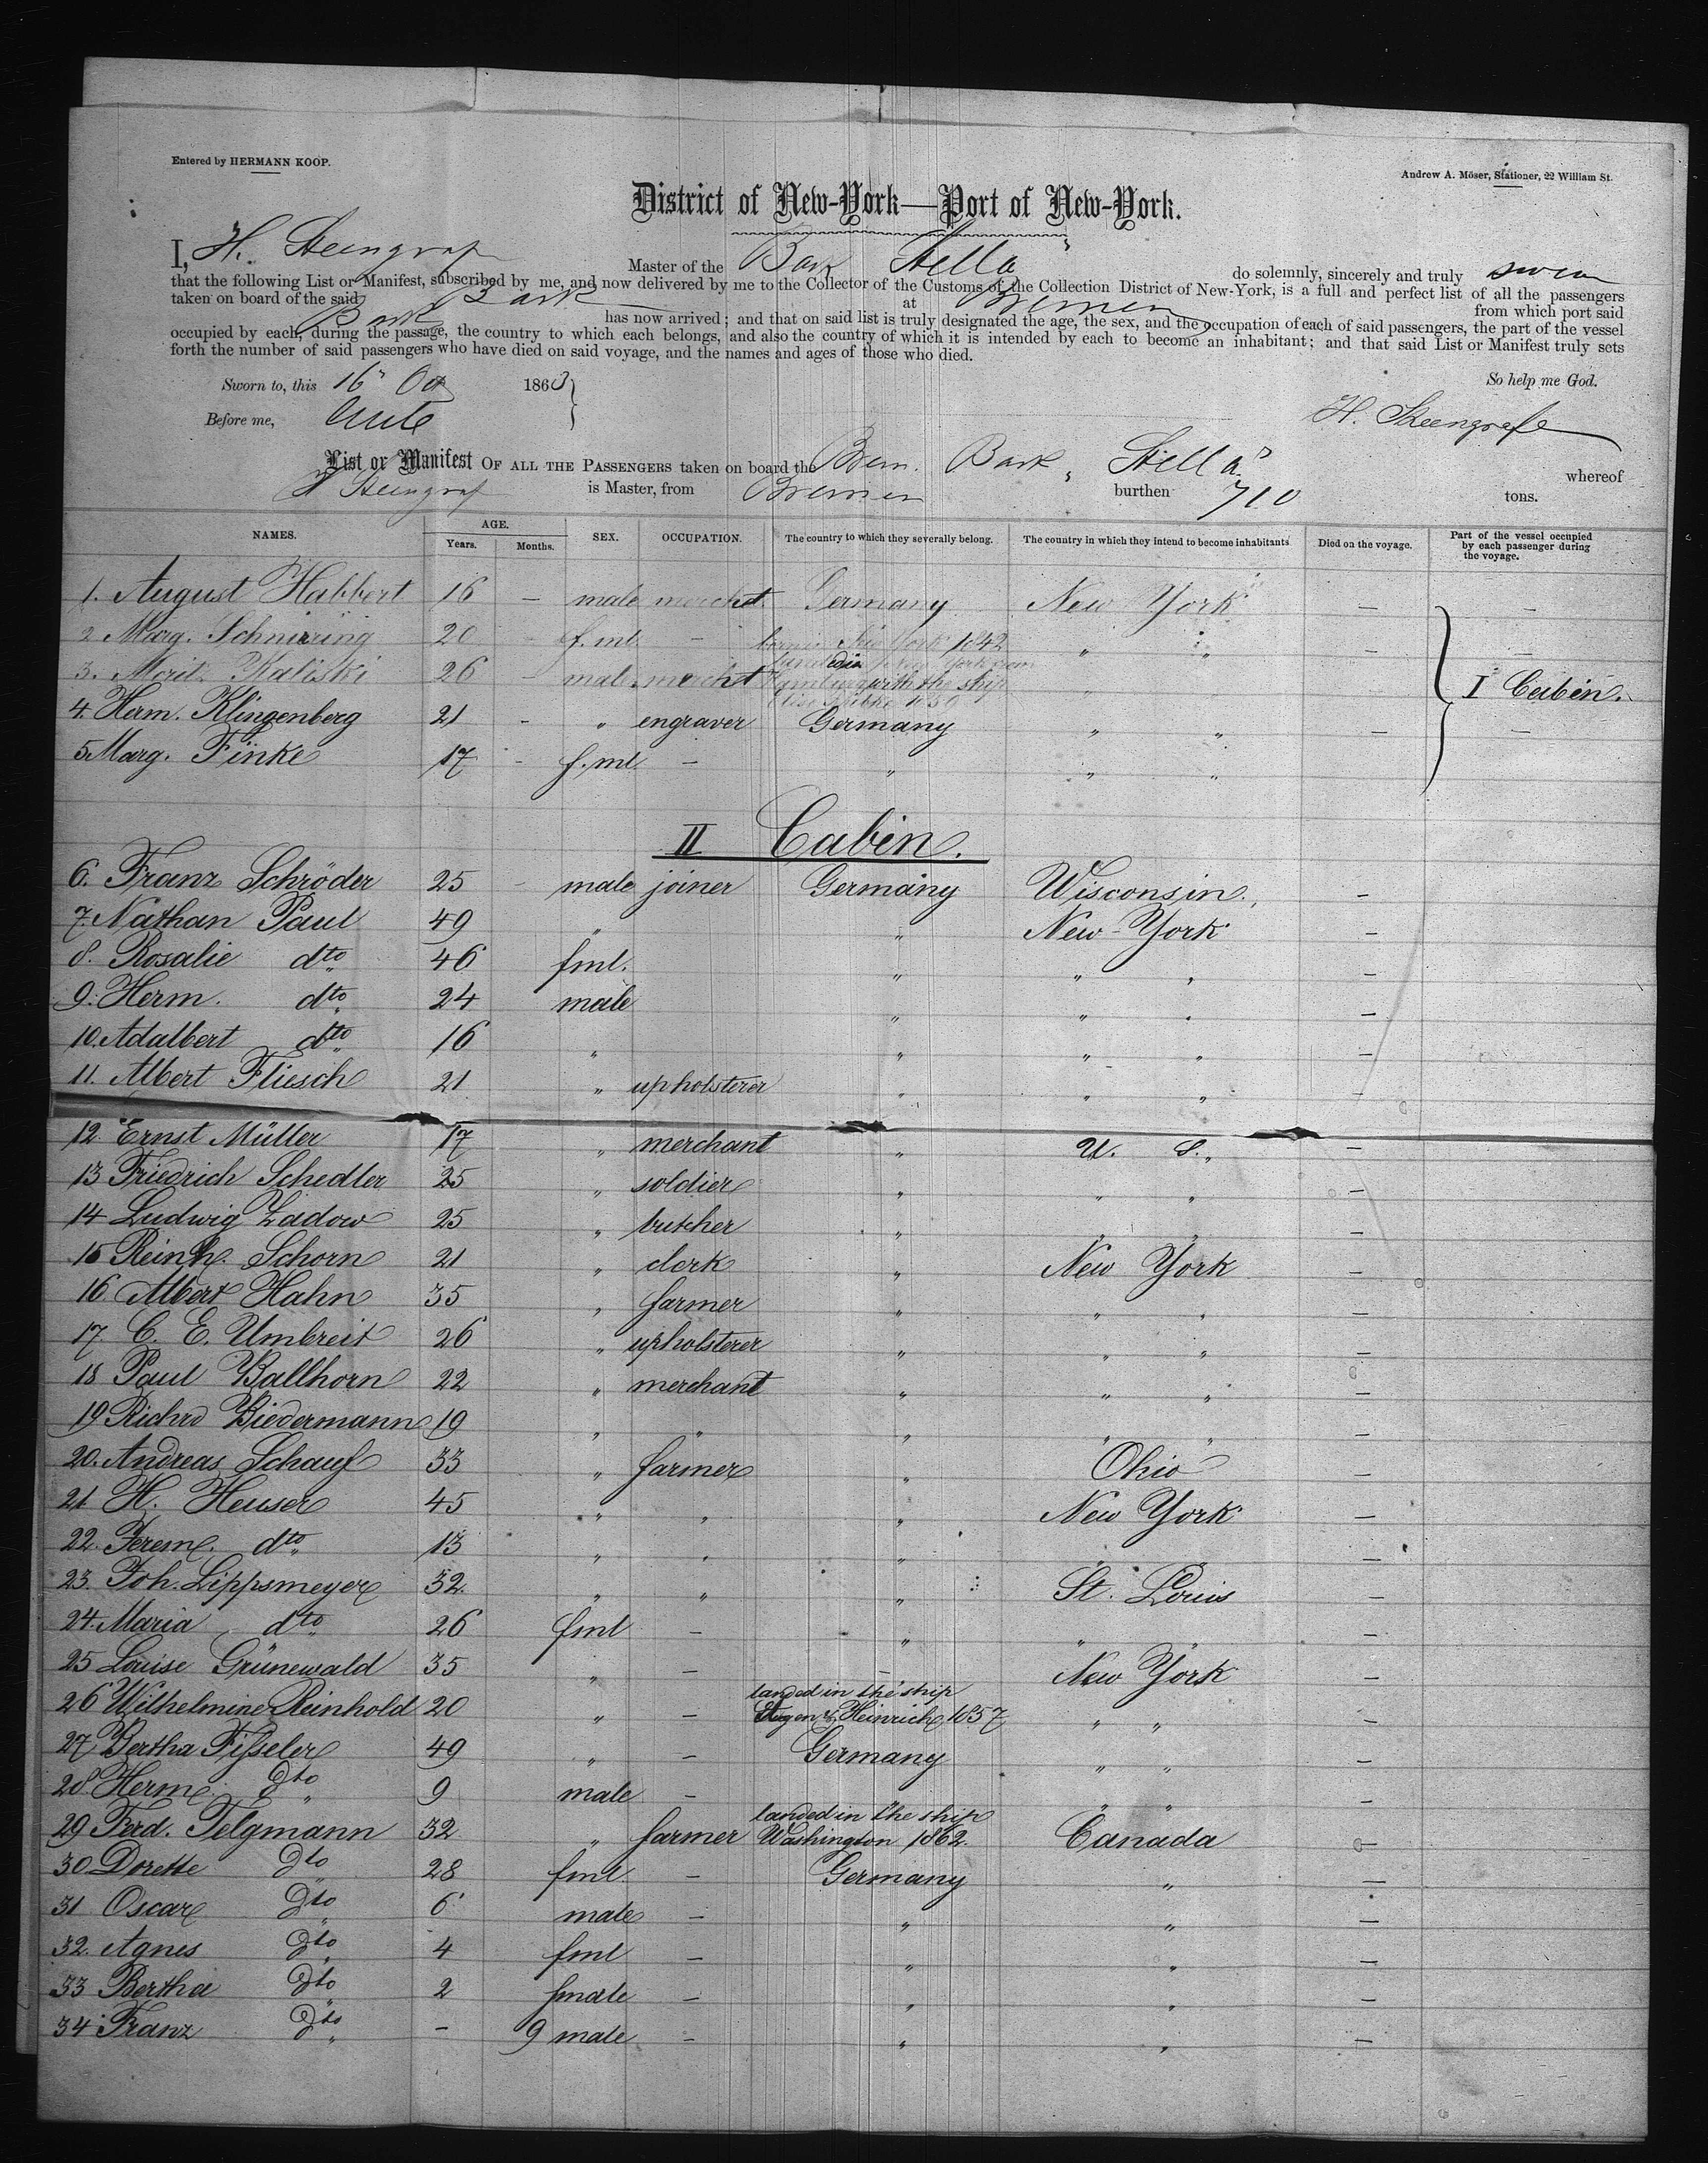 Entered by HERMANN KOOP.
Andrew A. Möser, Stationer, 22 William St.
District of New-York—Port of New-York.
I, H. Steengraf Master of the Bark Stella" do solemnly, sincerely and truly swear
that the following List or Manifest, subscribed by me, and now delivered by me to the Collector of the Customs of the Collection District of New-York, is a full and perfect list of all the passengers
taken on board of the said Bark at Bremen from which port said
Bark has now arrived; and that on said list is truly designated the age, the sex, and the occupation of each of said passengers, the part of the vessel
occupied by each, during the passage, the country to which each belongs, and also the country of which it is intended by each to become an inhabitant; and that said List or Manifest truly sets
forth the number of said passengers who have died on said voyage, and the names and ages of those who died.
Sworn to, this 16" Oct 1863 So help me God.
Before me, H. Steengrafe
List or Manifest OF ALL THE PASSENGERS taken on board the Brem. Bark „ Stella" whereof
H Steengraf is Master, from Bremen burthen 710 tons.
NAMES. AGE. Years. Months. SEX. OCCUPATION. The country to which they severally belong. The country in which they intend to become inhabitants Died on the voyage. Part of the vessel occupied by each passenger during the voyage.
1. August Habbert 16 – male merchet. Germany New York – –
2 Marg. Schnirring 20 – f.ml. – born in New York 1842 „ „ – –
3. Morit. Kaliski 26 – male. mercht landed in New York from Hamburg with the ship Elise 1859 „ „ I Cabin.
4. Herm. Klingenberg 21 – „ engraver Germany „ „ – –
5 Marg. Finke 17 – f.ml. – „ „ „
II Cabin.
6. Franz Schröder 25 – male joiner Germany Wisconsin. –
7. Nathan Paul 49 „ „ New-York –
8. Rosalie dto 46 fml. „ „ „ –
9. Herm. dto 24 male „ „ „ –
10. Adalbert dto 16 „ „ „ „ –
11. Albert Fliesch 21 „ upholsterer „ „ „ –
12. Ernst Müller 17 „ merchant „ U. S. –
13 Friedrich Schedler 25 „ soldier „ „ „ –
14 Ludwig Zadow 25 „ butcher „ „ „ –
15 Reinh. Schorn 21 „ clerk „ New York –
16. Albert Hahn 35 „ farmer „ „ „ –
17. C. E. Umbreit 26 „ upholsterer „ „ „ –
18 Paul Ballhorn 22 „ merchant „ „ „ –
19 Richrd Biedermann 19 „ „ „ „ „ –
20. Andreas Schauf 33 „ farmer „ Ohio –
21 H. Heuser 45 „ „ „ New York –
22. Jerem. dto 13 „ „ „ „ „ –
23. Joh. Lippsmeyer 32. „ „ „ St. Louis –
24. Maria dto 26 fml – „ „ „ –
25 Louise Grünewald 35 „ – – New York –
26 Wilhelmine Reinhold 20 „ – landed in the ship Eugen & Heinrich 1857 „ „ –
27 Bertha Fisseler 49 „ – Germany „ „ –
28 Herm. Dto 9 male – „ „ –
29 Ferd. Telgmann 32 „ farmer landed in the ship Washington 1862. Canada –
30 Dorette Dto 28 fml. – Germany „ –
31 Oscar Dto 6 male – „ „ –
32. Agnes Dto 4 fml – „ „ –
33 Bertha Dto 2 fmale – „ „ –
34 Franz Dto – 9 male – „ „ –